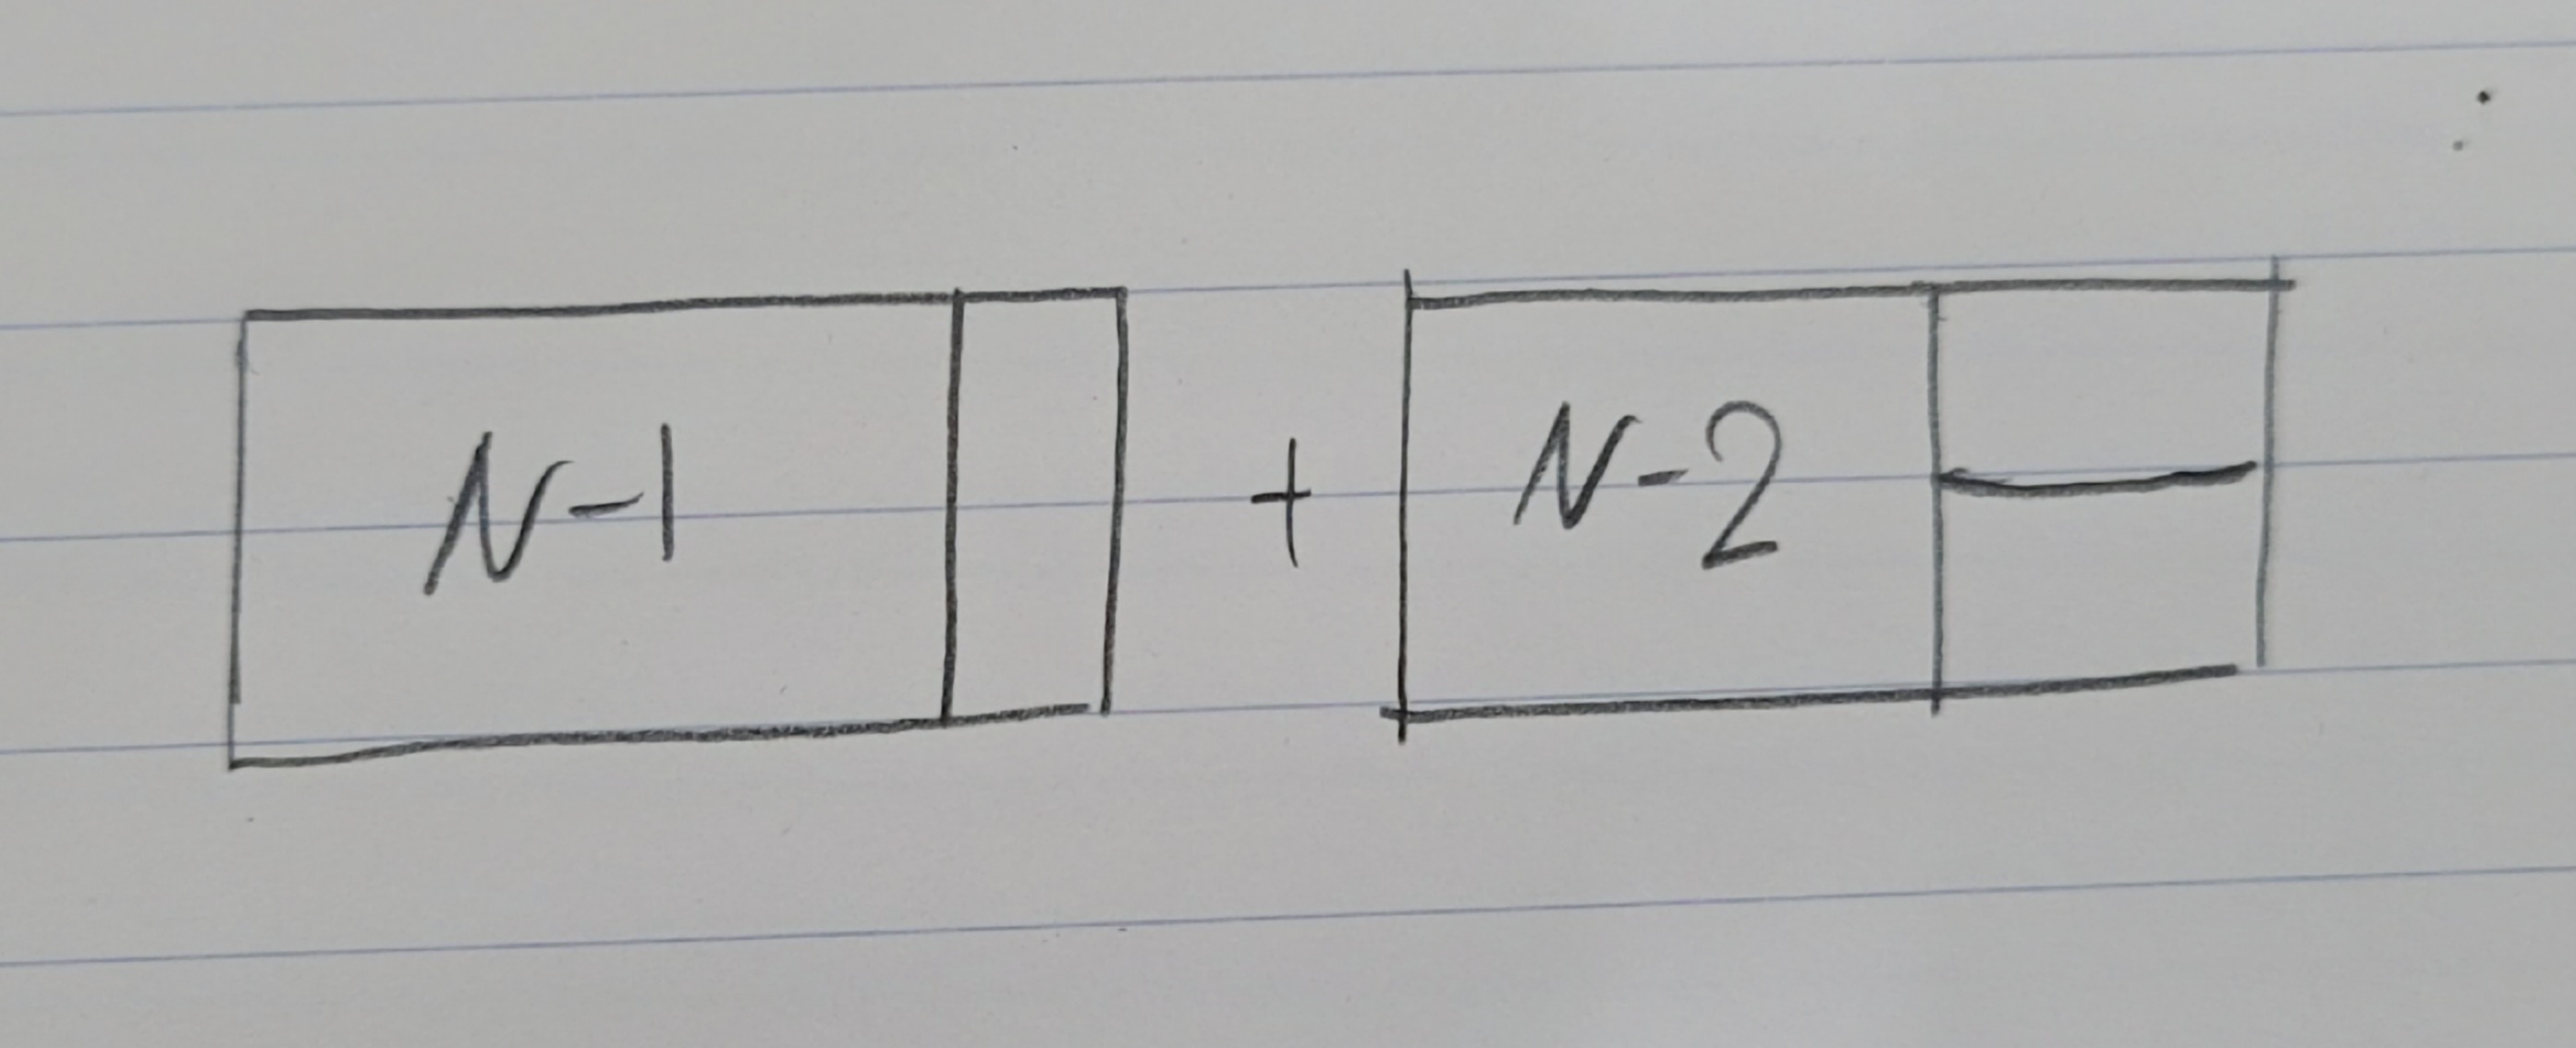 N-1 + N-2